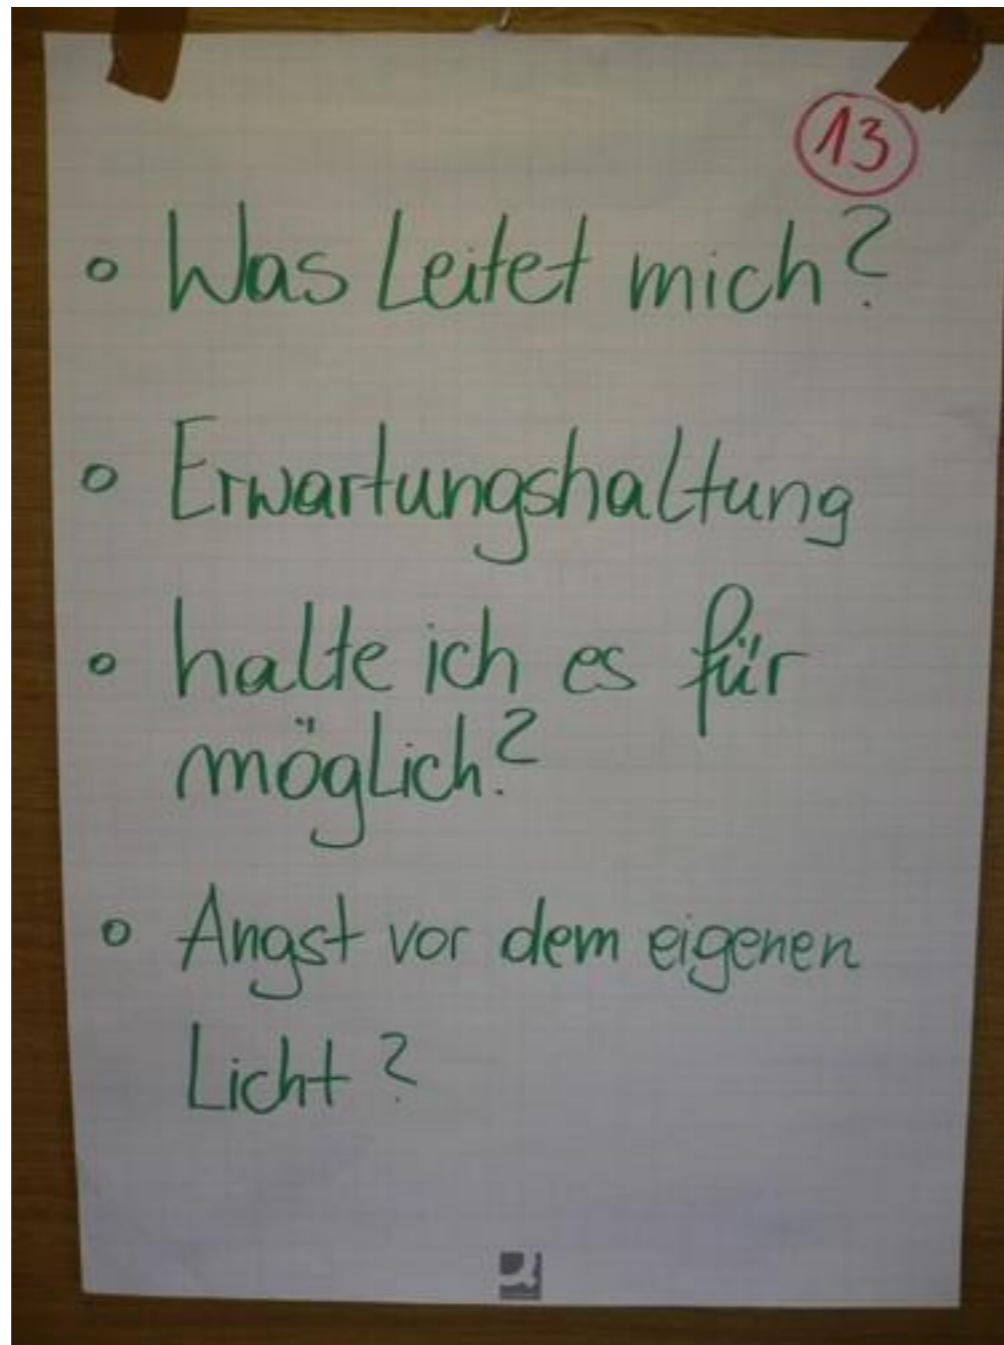 13
∘ Was Leitet mich?
∘ Erwartungshaltung
∘ halte ich es für
möglich?
∘ Angst vor dem eigenen
Licht?